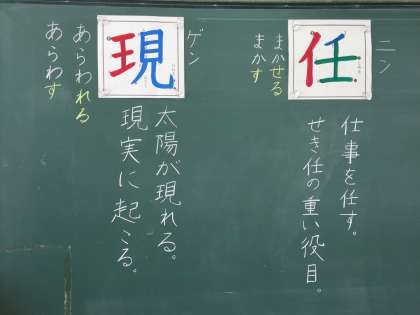 ニン
任
まかせる
まかす
仕事を任す。
せき任の重い役目。
ゲン
現
あらわれる
あらわす
太陽が現れる。
現実に起こる。